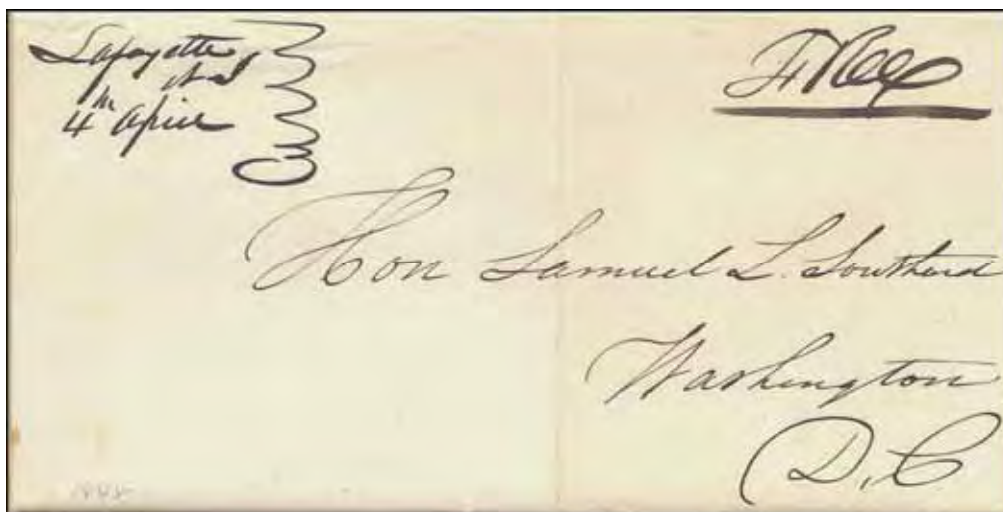 Lafayette
N J
4th April
Free
Hon Samuel L. Southard
Washington
D. C.